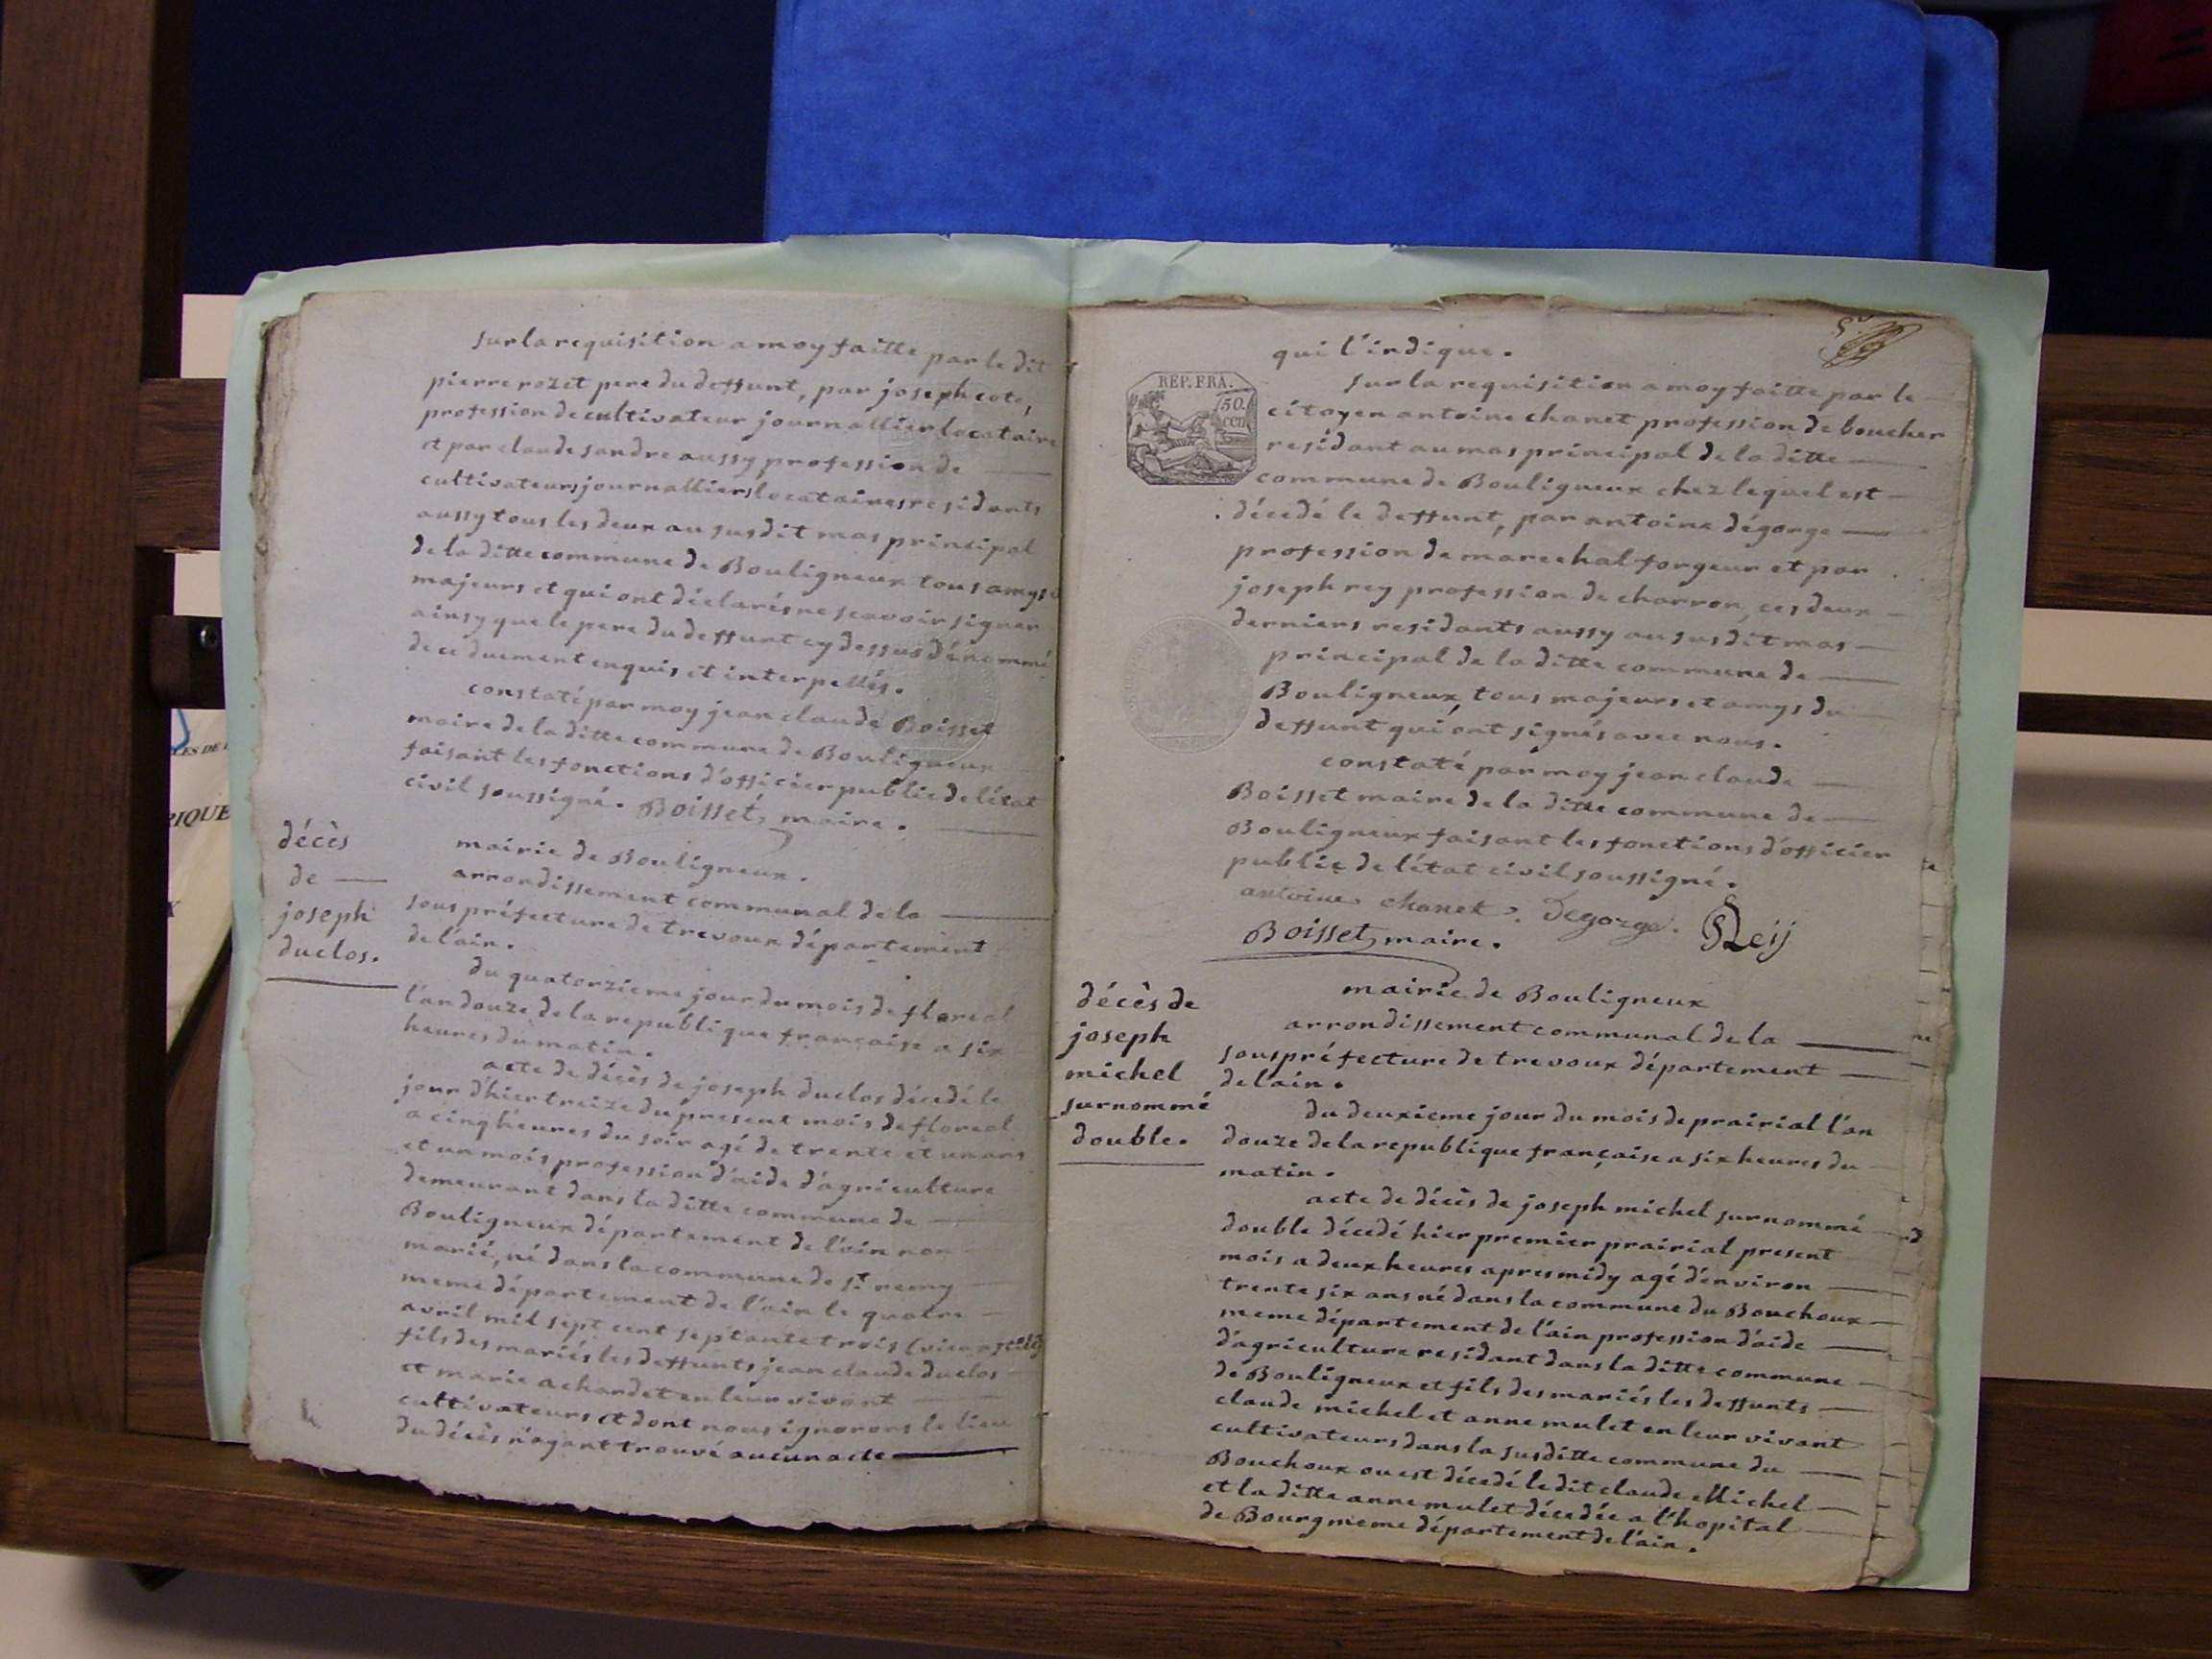 sur la requisition a moy faitte par le dit
pierre rozet pere du deffunt, par joseph cote,
profession de cultivateur journallier locataire
et par claude sandre aussy profession de
cultivateurs journalliers locataires residants
aussy tous les deux au susdit mas principal
de la ditte commune de Bouligneux tous amys
majeurs et qui ont déclarés ne scavoir signer
ainsy que le pere du deffunt cy dessus dénommé
de ce duement enquis et interpellés.
constaté par moy jean claude Boisset
maire de la ditte commune de Bouligneux
faisant les fonctions d'officier public de l'état
civil soussigné. Boisset, maire.
décès
de
joseph
duclos.
mairie de Bouligneux.
arrondissement communal de la
sous préfecture de trevoux département
de l'ain.
du quatorzieme jour du mois de floreal
l'an douze de la republique française a six
heures du matin.
acte de décès de joseph duclos décedé le
jour d'hier treize du present mois de floreal
a cinq heures du soir agé de trente et un ans
et un mois profession d'aide d'agriculture
demeurant dans la ditte commune de
Bouligneux département de l'ain non
marié, né dans la commune de st remy
meme département de l'ain le quatre
avril mil sept cent septante trois (vieux stile)
fils des mariés les deffunts jean claude duclos
et marie achardet en leur vivant
cultivateurs et dont nous ignorons le lieu
du décès n'ayant trouvé aucun acte
qui l'indique.
REP. FRA.
50.
cen
sur la requisition a moy faitte par le
citoyen antoine chanet profession de boucher
residant au mas principal de la ditte
commune de Bouligneux chez lequel est
décedé le deffunt, par antoine dégorge
profession de marechal forgeur et par
joseph rey profession de charron, ces deux
derniers residants aussy au susdit mas
principal de la ditte commune de
Bouligneux, tous majeurs et amys du
deffunt qui ont signés avec nous.
constaté par moy jean claude
Boisset maire de la ditte commune de
Bouligneux faisant les fonctions d'officier
public de l'état civil soussigné.
antoine chanet. Degorge. Reij
Boisset, maire.
décès de
joseph
michel
surnommé
double.
mairie de Bouligneux
arrondissement communal de la
sous préfecture de trevoux département
de l'ain.
du deuxieme jour du mois de prairial l'an
douze de la republique française a six heures du
matin.
acte de décès de joseph michel surnommé
double décedé hier premier prairial present
mois a deux heures apres midy agé d'environ
trente six ans né dans la commune du Bouchoux
meme département de l'ain profession d'aide
d'agriculture residant dans la ditte commune
de Bouligneux et fils des mariés les deffunts
claude michel et anne mulet en leur vivant
cultivateurs dans la susditte commune du
Bouchoux ou est décedé le dit claude Michel
et la ditte anne mulet décedée a l'hopital
de Bourg meme département de l'ain.